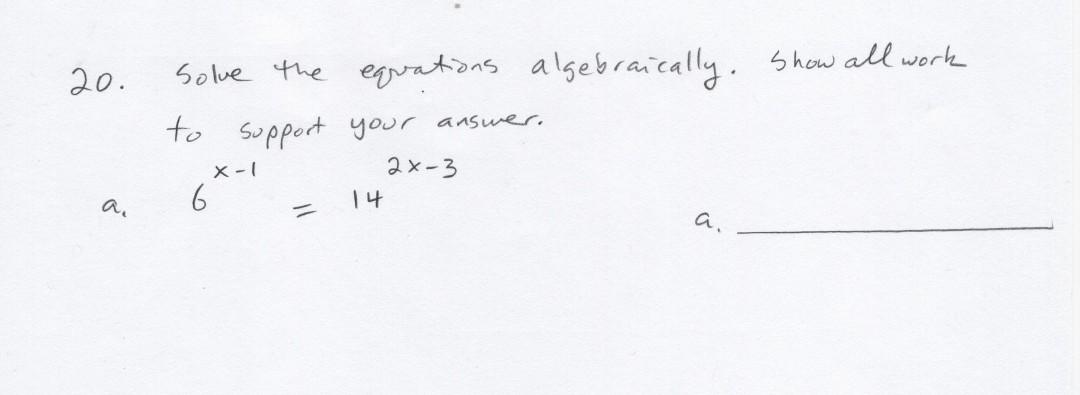 20. Solve the equations algebraically. Show all work
to support your answer.
a. 6^(x-1) = 14^(2x-3)
a. ____________